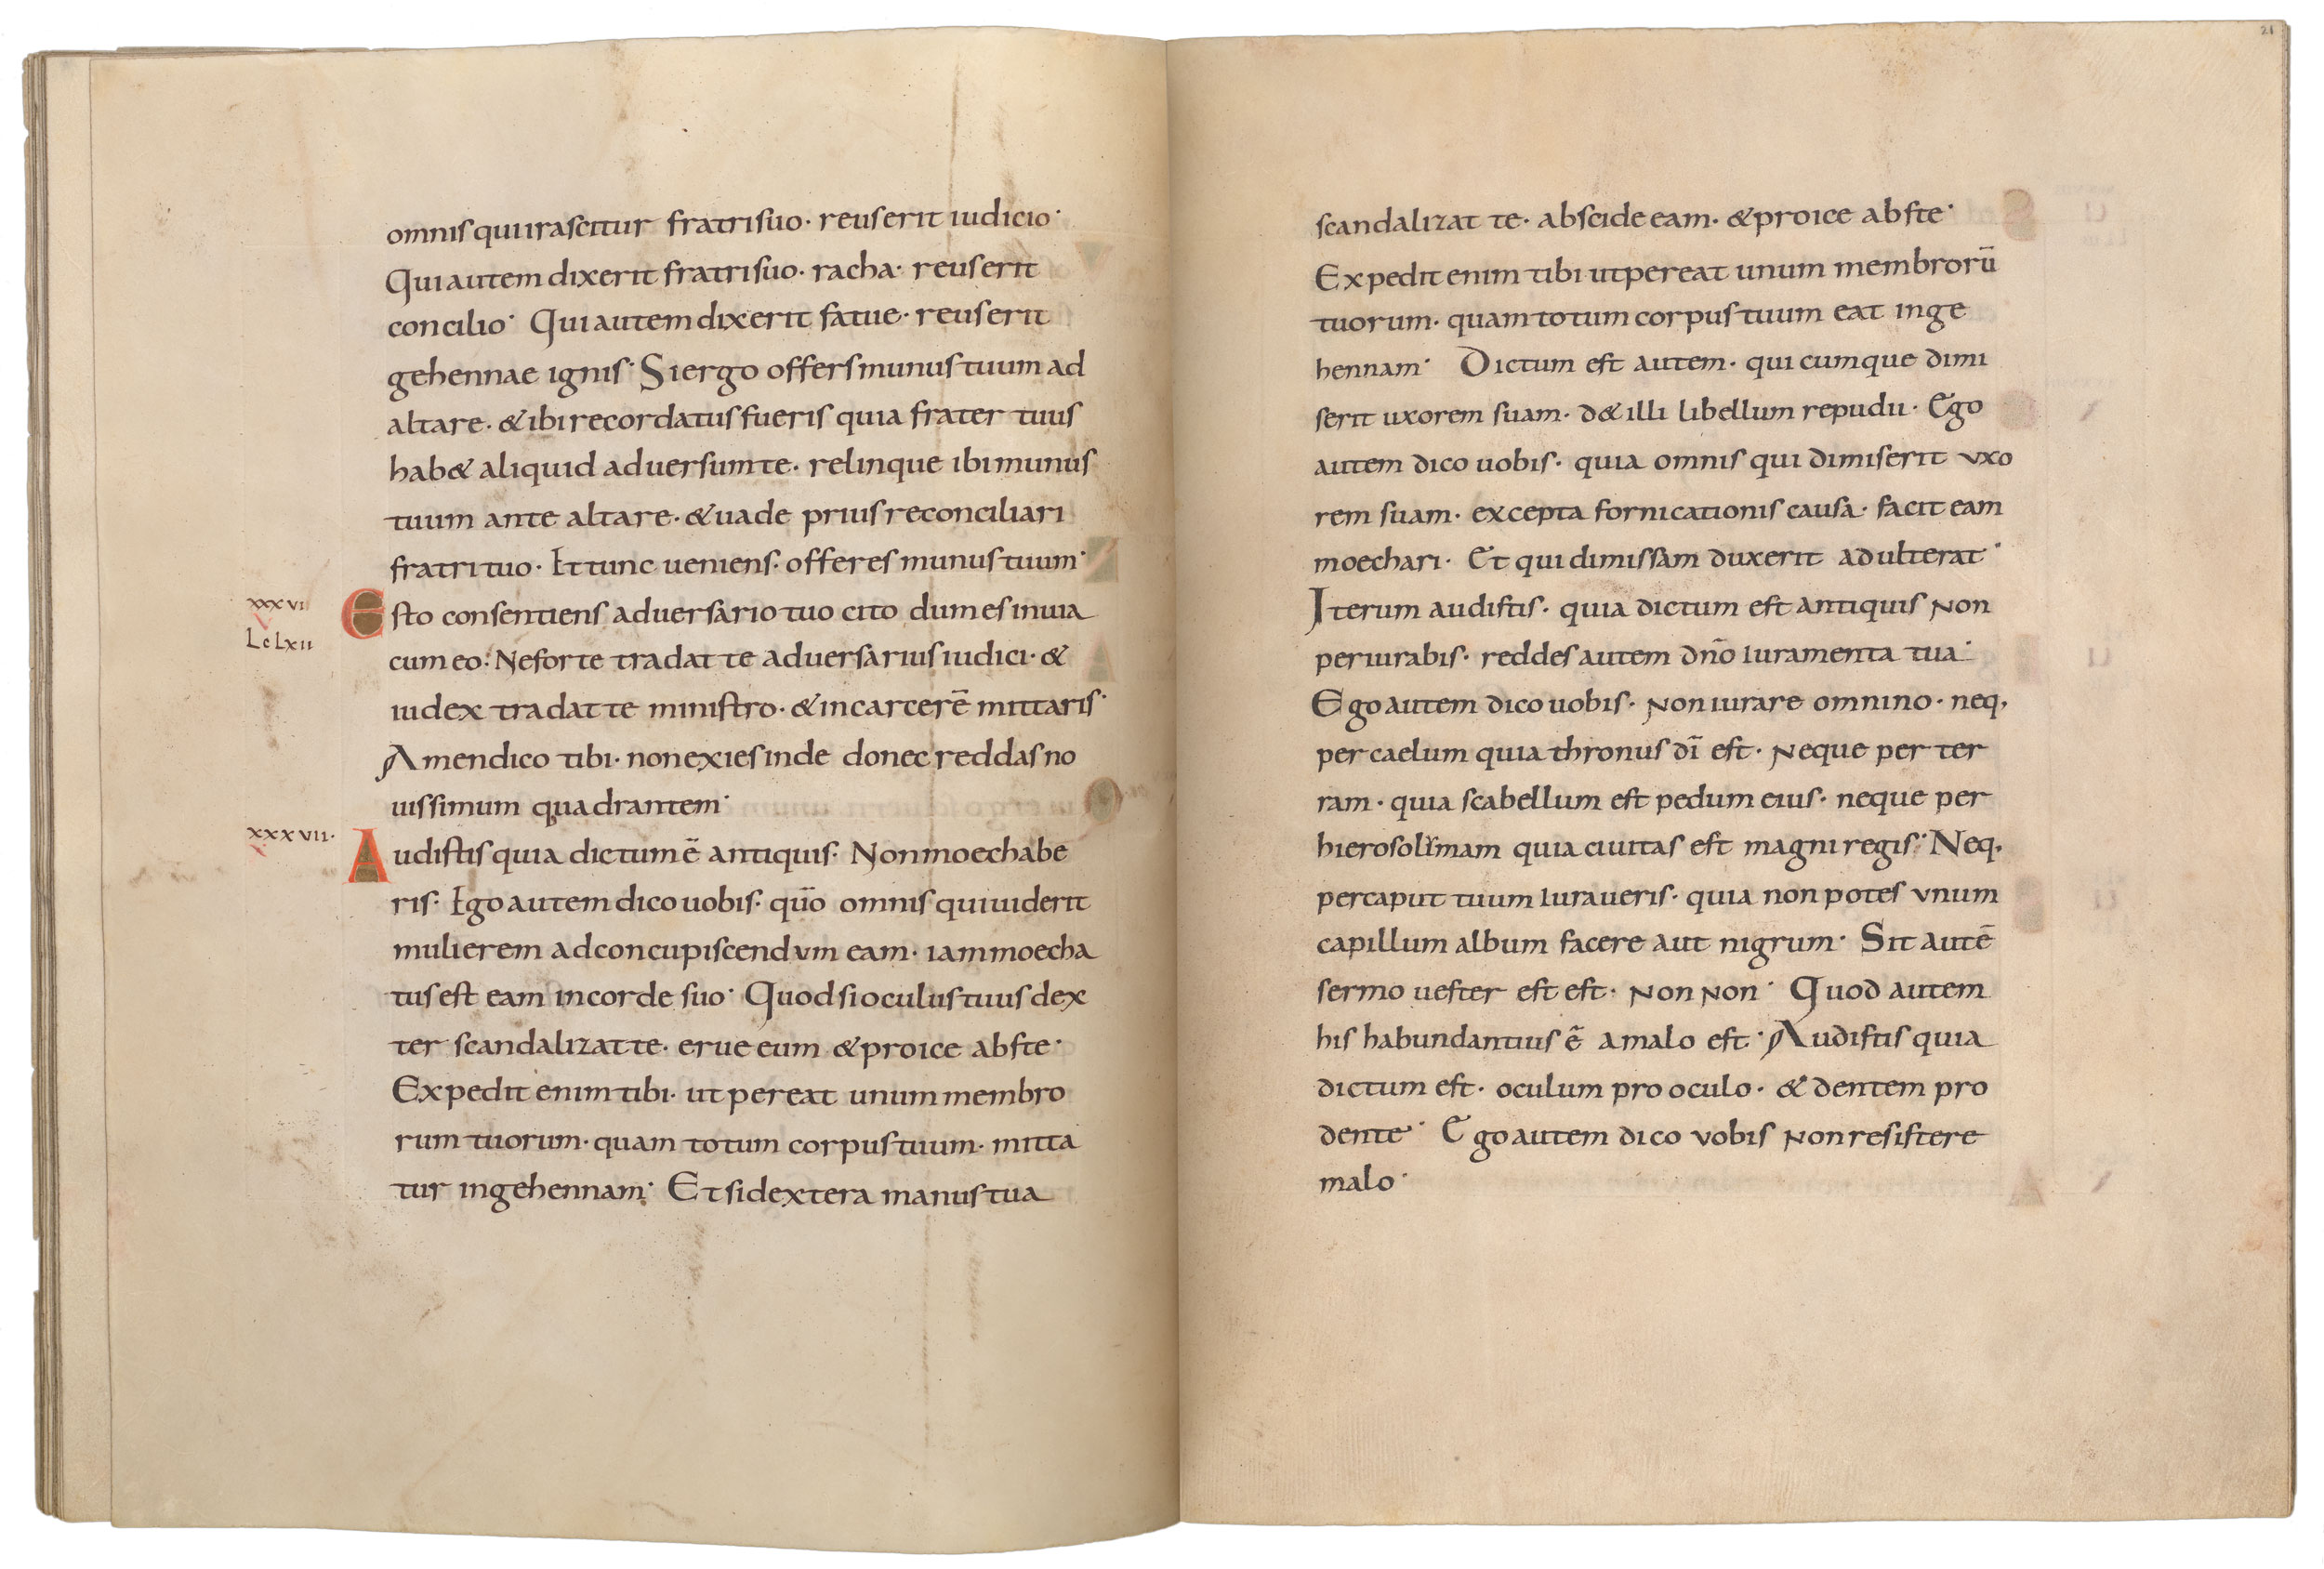 omnis qui irascitur fratri suo· reus erit iudicio·
Qui autem dixerit fratri suo· racha· reus erit
concilio· Qui autem dixerit fatue· reus erit
gehennae ignis· Si ergo offers munus tuum ad
altare· & ibi recordatus fueris quia frater tuus
hab& aliquid aduersum te· relinque ibi munus
tuum ante altare· & uade prius reconciliari
fratri tuo· Et tunc ueniens· offeres munus tuum·
xxxvi
Lc Lxii
Esto consentiens aduersario tuo cito dum es in uia
cum eo· Ne forte tradat te aduersarius iudici· &
iudex tradat te ministro· & in carcerē mittaris·
Amen dico tibi· non exies inde donec reddas no
uissimum quadrantem·
xxxvii·
Audistis quia dictum ē antiquis· Non moechabe
ris· Ego autem dico uobis· qūo omnis qui uiderit
mulierem ad concupiscendum eam· iam moecha
tus est eam in corde suo· Quod si oculus tuus dex
ter scandalizat te· erue eum & proice abs te·
Expedit enim tibi· ut pereat unum membro
rum tuorum· quam totum corpus tuum· mitta
tur in gehennam· Et si dextera manus tua
21
scandalizat te· abscide eam· & proice abs te·
Expedit enim tibi ut pereat unum membrorū
tuorum· quam totum corpus tuum eat in ge
hennam· Dictum est autem· quicumque dimi
serit uxorem suam· d& illi libellum repudii· Ego
autem dico uobis· quia omnis qui dimiserit uxo
rem suam· excepta fornicationis causa· facit eam
moechari· Et qui dimissam duxerit adulterat·
Iterum audistis· quia dictum est antiquis Non
periurabis· reddes autem dn̄o iuramenta tua·
Ego autem dico uobis· Non iurare omnino· neq,
per caelum quia thronus dī est· Neque per ter
ram· quia scabellum est pedum eius· neque per
hierosolimam quia ciuitas est magni regis· Neq,
per caput tuum iuraueris· quia non potes unum
capillum album facere aut nigrum· Sit autē
sermo uester est est· Non Non· Quod autem
his habundantius ē a malo est· Audistis quia
dictum est· oculum pro oculo· & dentem pro
dente· Ego autem dico vobis Non resistere
malo·